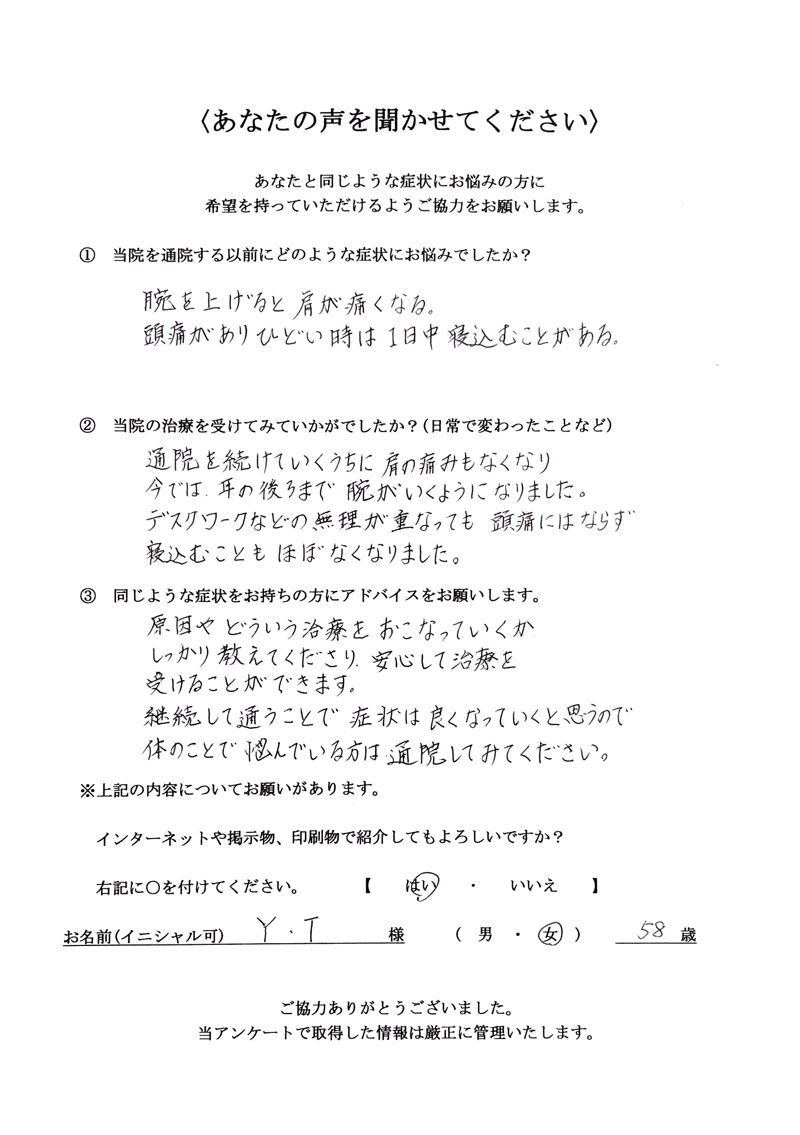 〈あなたの声を聞かせてください〉
あなたと同じような症状にお悩みの方に
希望を持っていただけるようご協力をお願いします。
① 当院を通院する以前にどのような症状にお悩みでしたか？
腕を上げると肩が痛くなる。
頭痛がありひどい時は1日中寝込むことがある。
② 当院の治療を受けてみていかがでしたか？(日常で変わったことなど)
通院を続けていくうちに肩の痛みもなくなり
今では、耳の後ろまで腕がいくようになりました。
デスクワークなどの無理が重なっても頭痛にはならず
寝込むこともほぼなくなりました。
③ 同じような症状をお持ちの方にアドバイスをお願いします。
原因やどういう治療をおこなっていくか
しっかり教えてくださり、安心して治療を
受けることができます。
継続して通うことで症状は良くなっていくと思うので
体のことで悩んでいる方は通院してみてください。
※上記の内容についてお願いがあります。
インターネットや掲示物、印刷物で紹介してもよろしいですか？
右記に○を付けてください。 【 はい ・ いいえ 】
お名前(イニシャル可) Y.T 様 ( 男 ・ 女 ) 58 歳
ご協力ありがとうございました。
当アンケートで取得した情報は厳正に管理いたします。